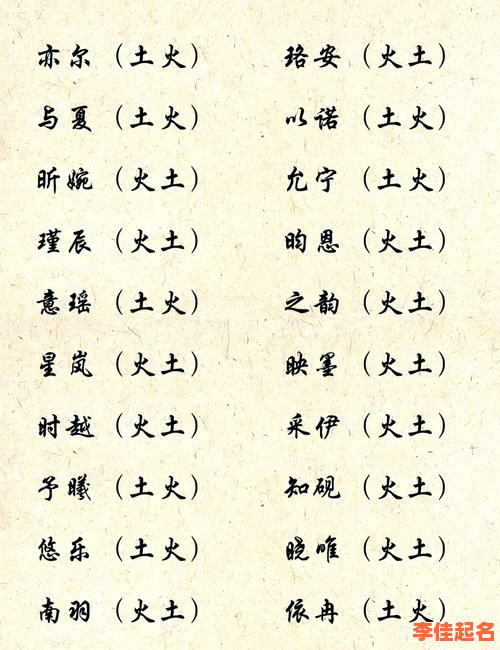 亦尔（土火） 珞安（火土）
与夏（土火） 以诺（土火）
昕婉（火土） 允宁（土火）
瑾辰（火土） 昀恩（火土）
意瑶（土火） 之韵（火土）
星岚（火土） 映墨（火土）
时越（火土） 采伊（火土）
予曦（土火） 知砚（火土）
悠乐（土火） 晓唯（火土）
南羽（火土） 依冉（土火）
李佳起名